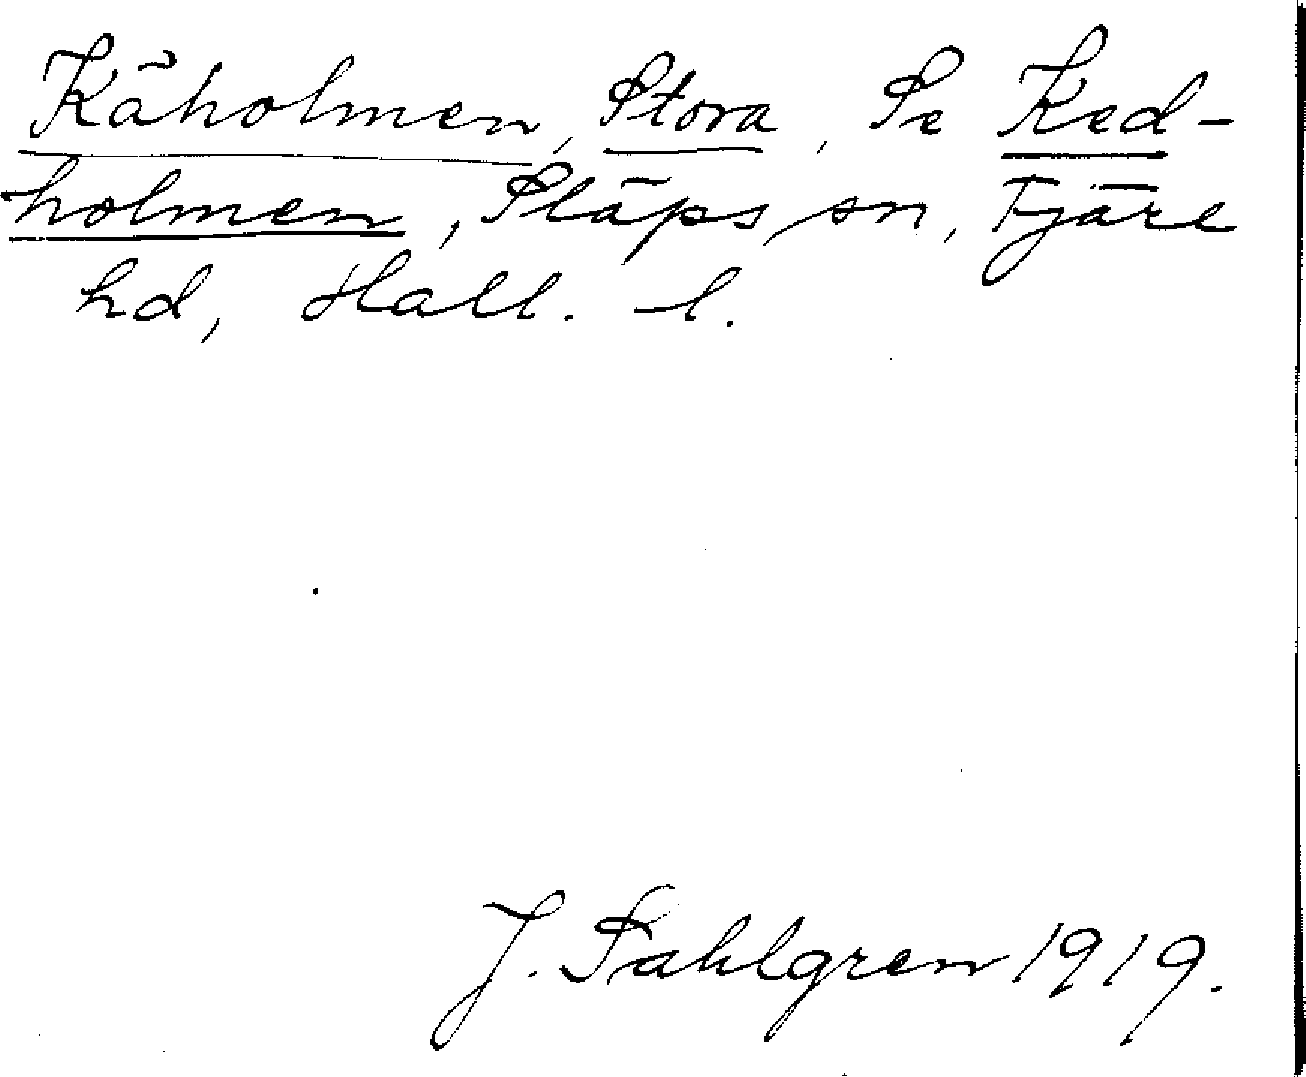 Käholmen, Stora, Se Ked-
holmen, Släps sn, Fjäre
hd, Hall. l.
J. Sahlgren 1919.